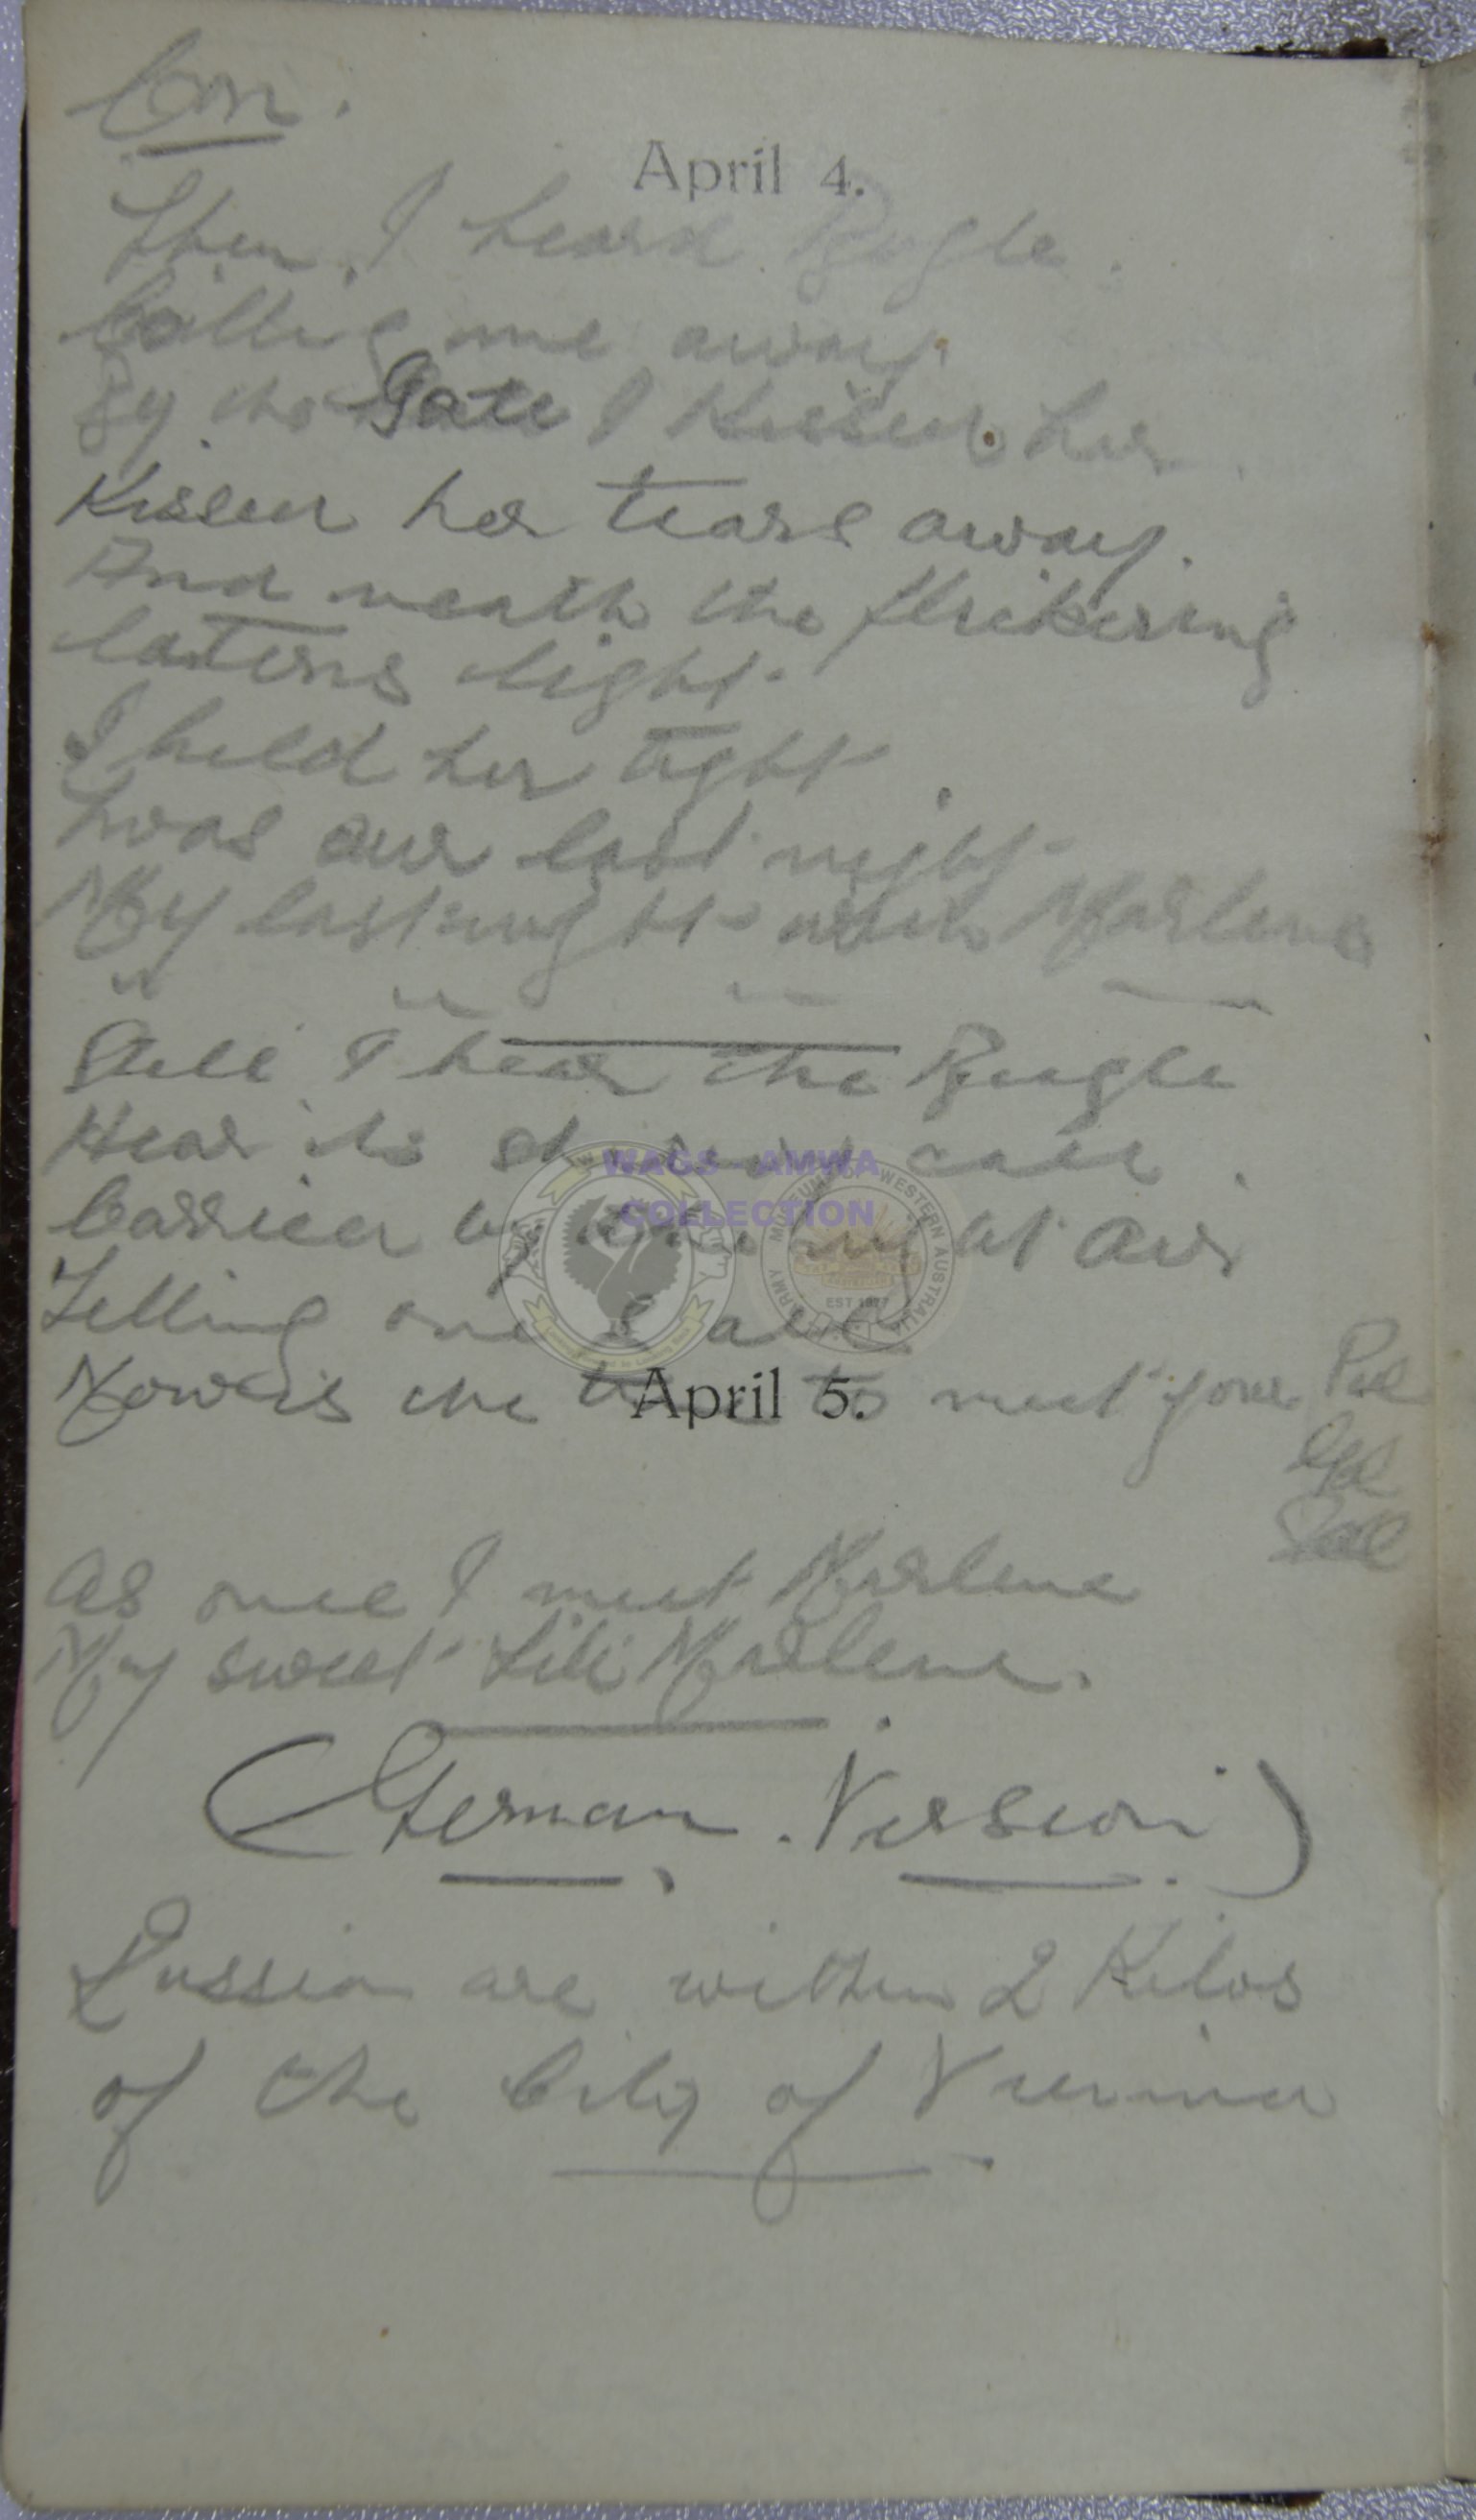 Con.
April 4.
Then, I heard Bugle.
Calling me away.
By the Gate I Kissed her.
Kissed her tears away.
And neath the flickering
laterns light.
I held her tight.
twas our last night
My last night with Marlene
Still I hear the Bugle
Hear its call.
Carried by the night air
Telling one & all
Now is the time to meet your Pal
Gal
April 5.
As once I meet Marlene
My sweet Lili Marlene.
(German Version)
Russian are within 2 Kilos
of the City of Vienna
WAGS - AMWA
COLLECTION
ARMY MUSEUM OF WESTERN AUSTRALIA
EST 1977